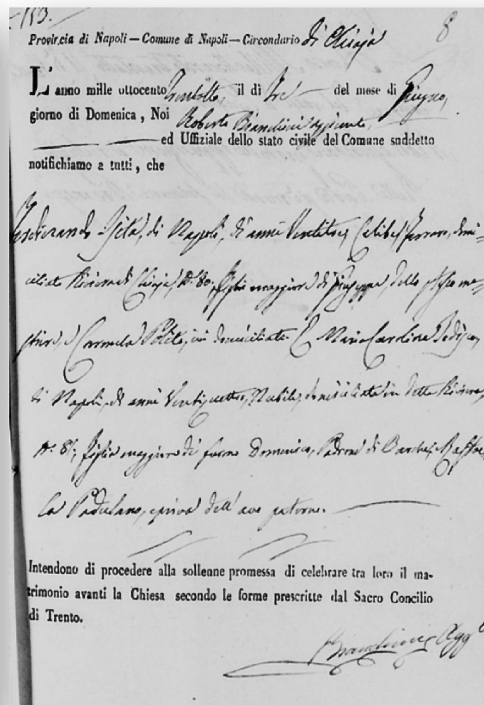 153.
8
Provincia di Napoli — Comune di Napoli — Circondario di Chiaja
L'anno mille ottocento trentotto, il dì tre del mese di Giugno,
giorno di Domenica, Noi Roberto Aggiunto
ed Uffiziale dello stato civile del Comune suddetto
notifichiamo a tutti, che
Ferdinando di Napoli, di anni Ventitre, Celibe, Ferraro, domi-
ciliato Riviera di Chiaja, N.° 80, figlio maggiore di Giuseppe, dello stesso me-
stiere, e Carmela Polito, ivi domiciliati. E Maria Carolina
di Napoli, di anni Ventiquattro, Nubile, domiciliata in detta Riviera,
N.° figlia maggiore di furono Domenico, Padrone di Barche, e Raffae-
la Padulano, e priva dell'avo paterno.
Intendono di procedere alla sollenne promessa di celebrare tra loro il ma-
trimonio avanti la Chiesa secondo le forme prescritte dal Sacro Concilio
di Trento.
Agg.°